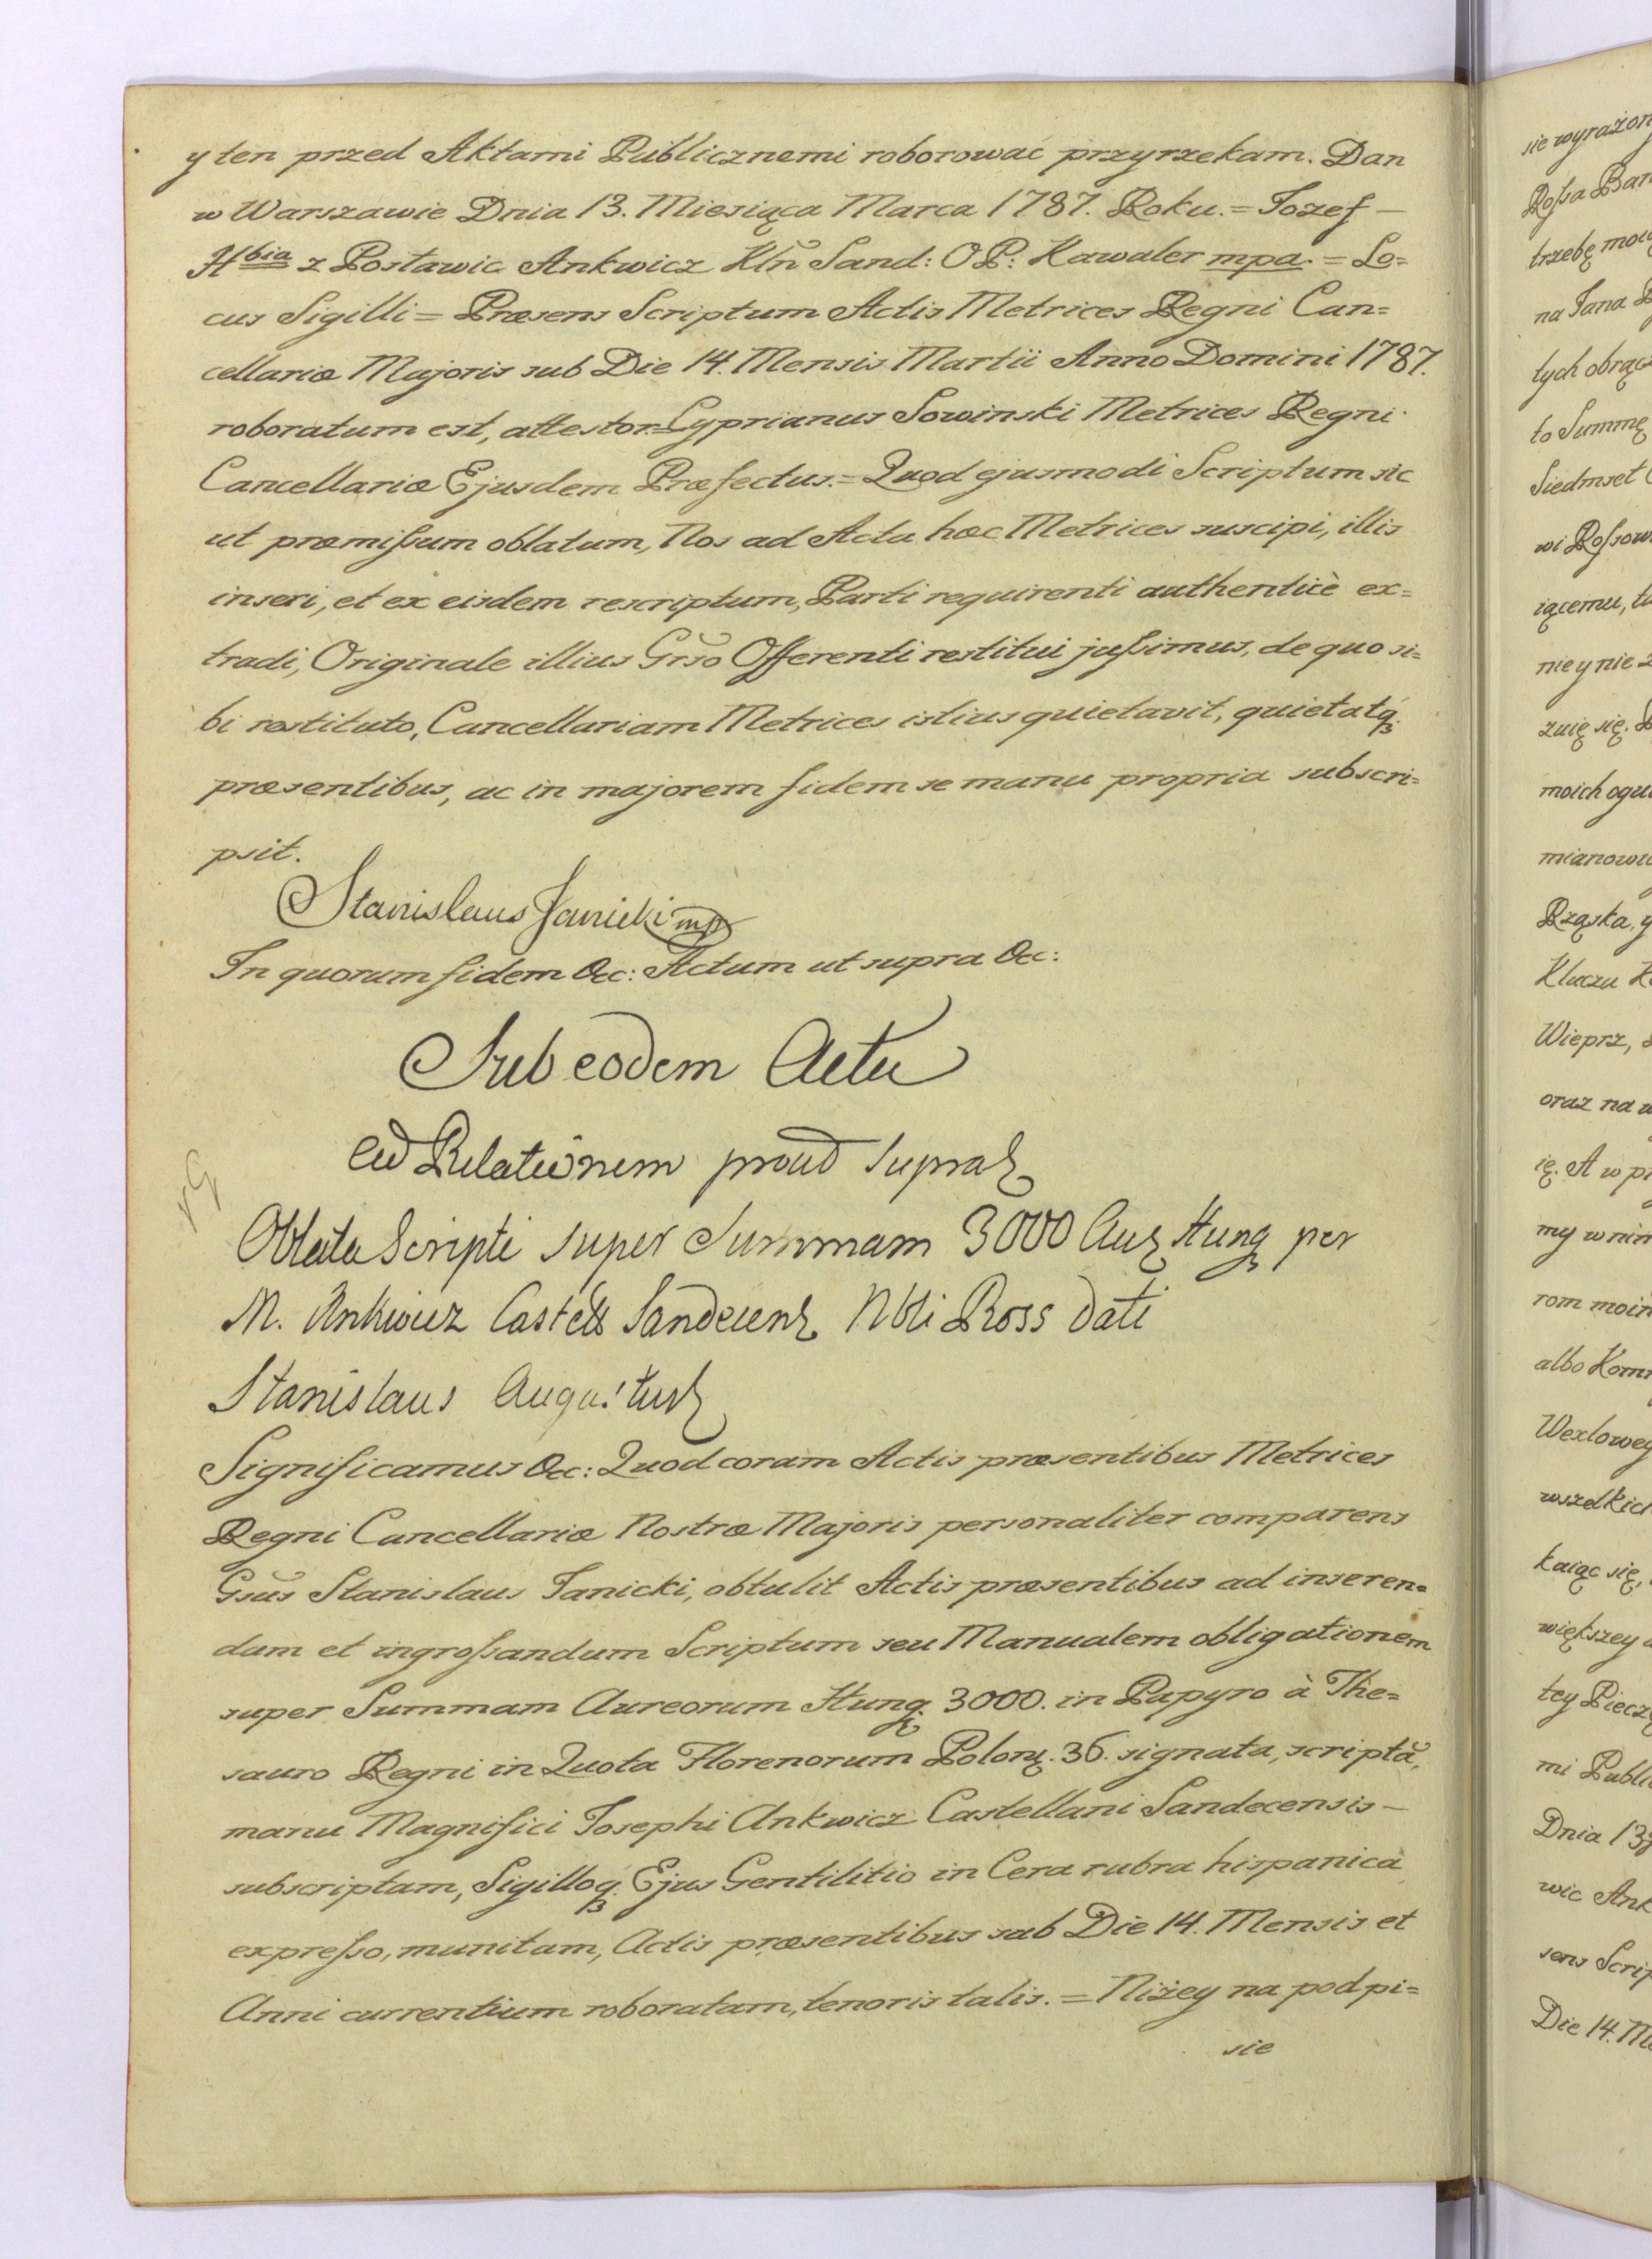 y ten przed Aktami Publicznemi roborować przyrzekam. Dan
w Warszawie Dnia 13. Miesiąca Marca 1787. Roku. = Jozef –
Hbia z Postawic Ankwicz Kłn Sand: O P: Kawaler mpa. = Lo=
cus Sigilli = Præsens Scriptum Actis Metrices Regni Can=
cellariæ Majoris sub Die 14. Mensis Martii Anno Domini 1787.
roboratum est, attestor = Cyprianus Sowinski Metrices Regni
Cancellariæ Ejusdem Præfectus. = Quod ejusmodi Scriptum sic
ut præmissum oblatum, Nos ad Acta hæc Metrices suscipi, illis
inseri, et ex eisdem rescriptum, Parti requirenti authenticè ex=
tradi, Originale illius Grso Offerenti restitui jussimus, de quo si=
bi restituto, Cancellariam Metrices istius quietavit, quietatq3
præsentibus, ac in majorem fidem se manu propria subscri=
psit.
Stanislaus Janicki mp
In quorum fidem &c: Actum ut supra &c:
Sub eodem Actu
Ad Relationem proud supra
Oblata Scripti super Summam 3000 Aur Hung per
M. Ankwicz Castell Sandecens Nbli Ross dati
Stanislaus Augustus
Significamus &c: Quod coram Actis præsentibus Metrices
Regni Cancellariæ Nostræ Majoris personaliter comparens
Gsus Stanislaus Janicki, obtulit Actis præsentibus ad inseren=
dum et ingrossandum Scriptum seu Manualem obligationem
super Summam Aureorum Hung. 3000. in Papyro à The=
sauro Regni in Quota Florenorum Polon. 36. signata, scriptã,
manu Magnifici Josephi Ankwicz Castellani Sandecensis –
subscriptam, Sigilloq3 Ejus Gentilitio in Cera rubra hispanicà
expresso, munitam, Actis præsentibus sub Die 14. Mensis et
Anni currentium roboratam, tenoris talis. = Niżey na podpi=
sie
sie wyrażon
Rossa Ban
trzebę moię
na Jana
tych obrąc
to Summę
Siedmset
wi Rossow
iącemu, ta
nie y nie
zuię się.
moich ogu
mianowi
Rząska, y
Kluczu K
Wieprz,
oraz na w
ię. A w p
my w nim
rom moim
albo Kom
Wexloweg
wszelkich
kaiąc się,
większey
tey Piecz
mi Publi
Dnia 13
wic Ank
sens Scrip
Die 14. M